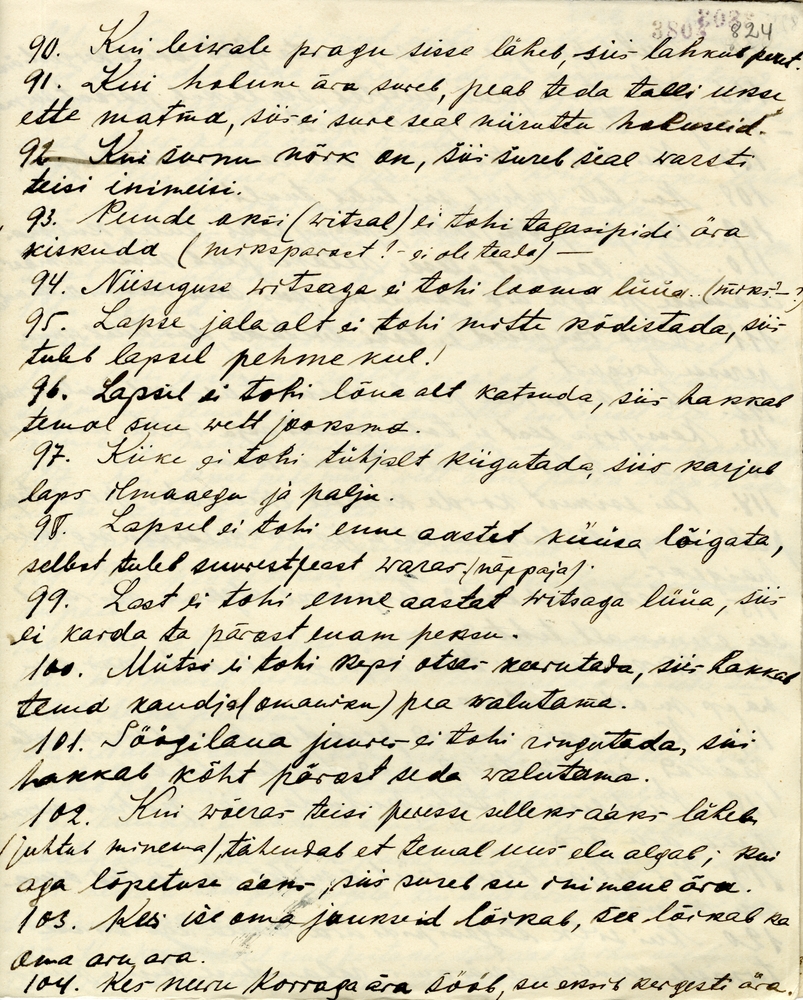 824
90. Kui leiwale pragu sisse läheb, siis lahkub perest.
91. Kui hobune ära sureb, peab teda talli ukse
ette matma, siis ei sure seal niiruttu hobuseid.
92. Kui surnu nõrk on, siis sureb seal warsti
teisi inimeisi.
93. Puude oksi (witsal) ei tohi tagasipidi ära
kiskuda (mikspärast! – ei ole teada) —
94. Niisuguse witsaga ei tohi looma lüüa. (miks? – ?)
95. Lapse jala alt ei tohi mitte kõdistada, siis
tuleb lapsel pehme keel!
96. Lapsel ei tohi lõua alt katsuda, siis hakkab
temal suu wett jooksma.
97. Kiike ei tohi tühjalt kiigutada, siis karjub
laps ilmaaegu ja palju.
98. Lapsel ei tohi enne aastat küüsa lõigata,
sellest tuleb suurest peast waras (näppaja).
99. Last ei tohi enne aastat witsaga lüüa, siis
ei karda ta pärast enam peksu.
100. Mütsi ei tohi kepi otsas keerutada, siis hakkab
tema kandja (omaniku) pea walutama.
101. Söögilaua juures ei tohi ringutada, siis
hakkab kõht pärast seda walutama.
102. Kui wõeras teisi peresse selleks ajaks läheb
(juhtub minema), tähendab et temal uus elu algab; kui
aga lõpetuse ajaks, siis sureb see inimene ära.
103. Kes ise oma juukseid lõikab, see lõikab ka
oma aru ära.
104. Kes neeru korraga ära sööb, see eksib kergesti ära.